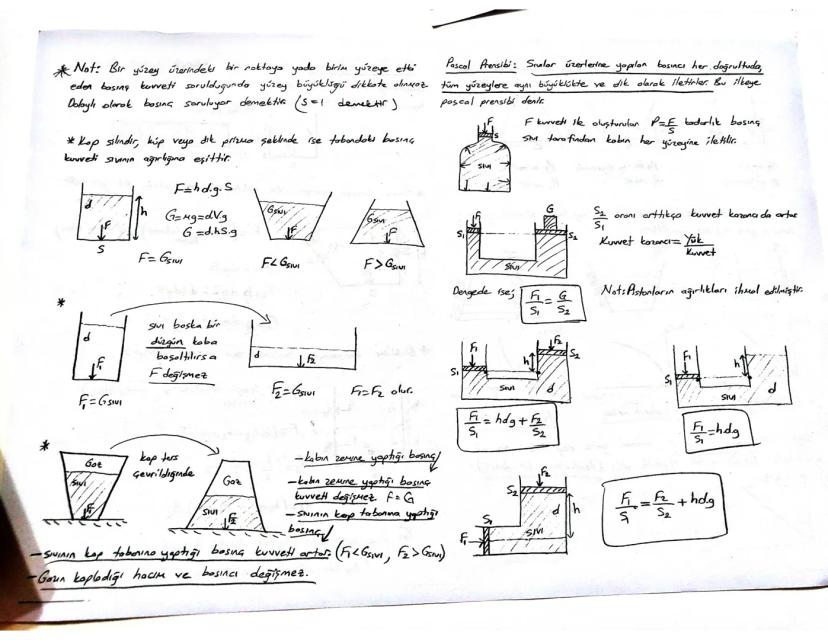 * Not: Bir yüzey üzerindeki bir noktaya yada birim yüzeye etki
eden basınç kuvveti sorulduğunda yüzey büyüklüğü dikkate alınmaz.
Dolaylı olarak basınç soruluyor demektir. (S=1 demektir)
* Kap silindir, küp veya dik prizma şeklinde ise tabandaki basınç
kuvveti sıvının ağırlığına eşittir.
F=h.d.g.S
G=mg=dVg
G=d.hS.g
d
h
F
S
F=Gsıvı
Gsıvı
F
F<Gsıvı
Gsıvı
F
F>Gsıvı
*
d
F₁
F₁=Gsıvı
sıvı başka bir
düzgün kaba
boşaltılırsa
F değişmez
d
F₂
F₂=Gsıvı
F₁=F₂ olur.
*
Gaz
sıvı
F₁
kap ters
çevrildiğinde
Gaz
sıvı
F₂
-kabın zemine yaptığı basınç ↓
-kabın zemine yaptığı basınç
kuvveti değişmez F=G
-sıvının kap tabanına yaptığı
basınç ↓
-sıvının kap tabanına yaptığı basınç kuvveti artar. (F₁<Gsıvı, F₂>Gsıvı)
-Gazın kapladığı hacim ve basıncı değişmez.
Pascal Prensibi: Sıvılar üzerlerine yapılan basıncı her doğrultuda,
tüm yüzeylere aynı büyüklükte ve dik olarak iletirler. Bu ilkeye
pascal prensibi denir.
F
S
sıvı
F kuvveti ile oluşturulan P=F/S kadarlık basınç
sıvı tarafından kabın her yüzeyine iletilir.
F₁
S₁
G
S₂
sıvı
S₂/S₁ oranı arttıkça kuvvet kazancı da artar
Kuvvet kazancı=Yük/Kuvvet
Dengede ise; F₁/S₁=G/S₂
Not: Pistonların ağırlıkları ihmal edilmiştir.
F₁
S₁
h
F₂
S₂
sıvı
d
F₁/S₁=hdg+F₂/S₂
F₁
S₁
h
sıvı
d
F₁/S₁=hdg
F₂
S₂
d
h
S₁
F₁
sıvı
F₁/S₁=F₂/S₂+hdg